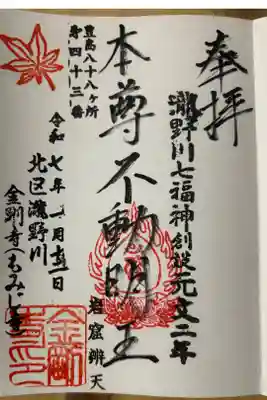 奉拝
瀧野川七福神創設元文二年
本尊不動明王
岩窟辨天
豊島八十八ヶ所
第四十三番
令和七年一月
北区瀧野川
金剛寺(もみじ寺)
金剛